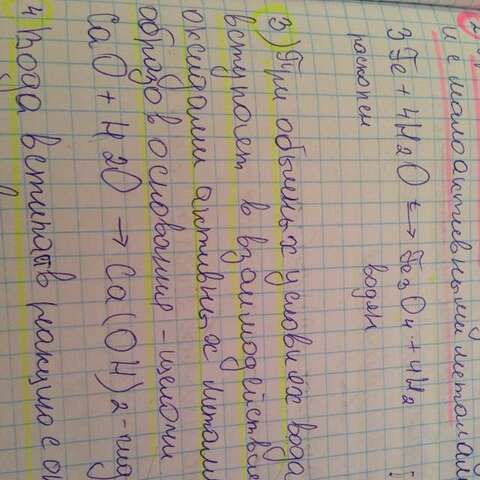 и с малоактивными металлам
3Fe + 4H2O t→ Fe3O4 + 4H2
раскален водян
3) При обычных условиях вода
вступает в взаимодействие
оксидами активных металл
образов основания - щелочи
CaO + H2O → Ca(OH)2 - гид
4) Вода вступает в реакцию с